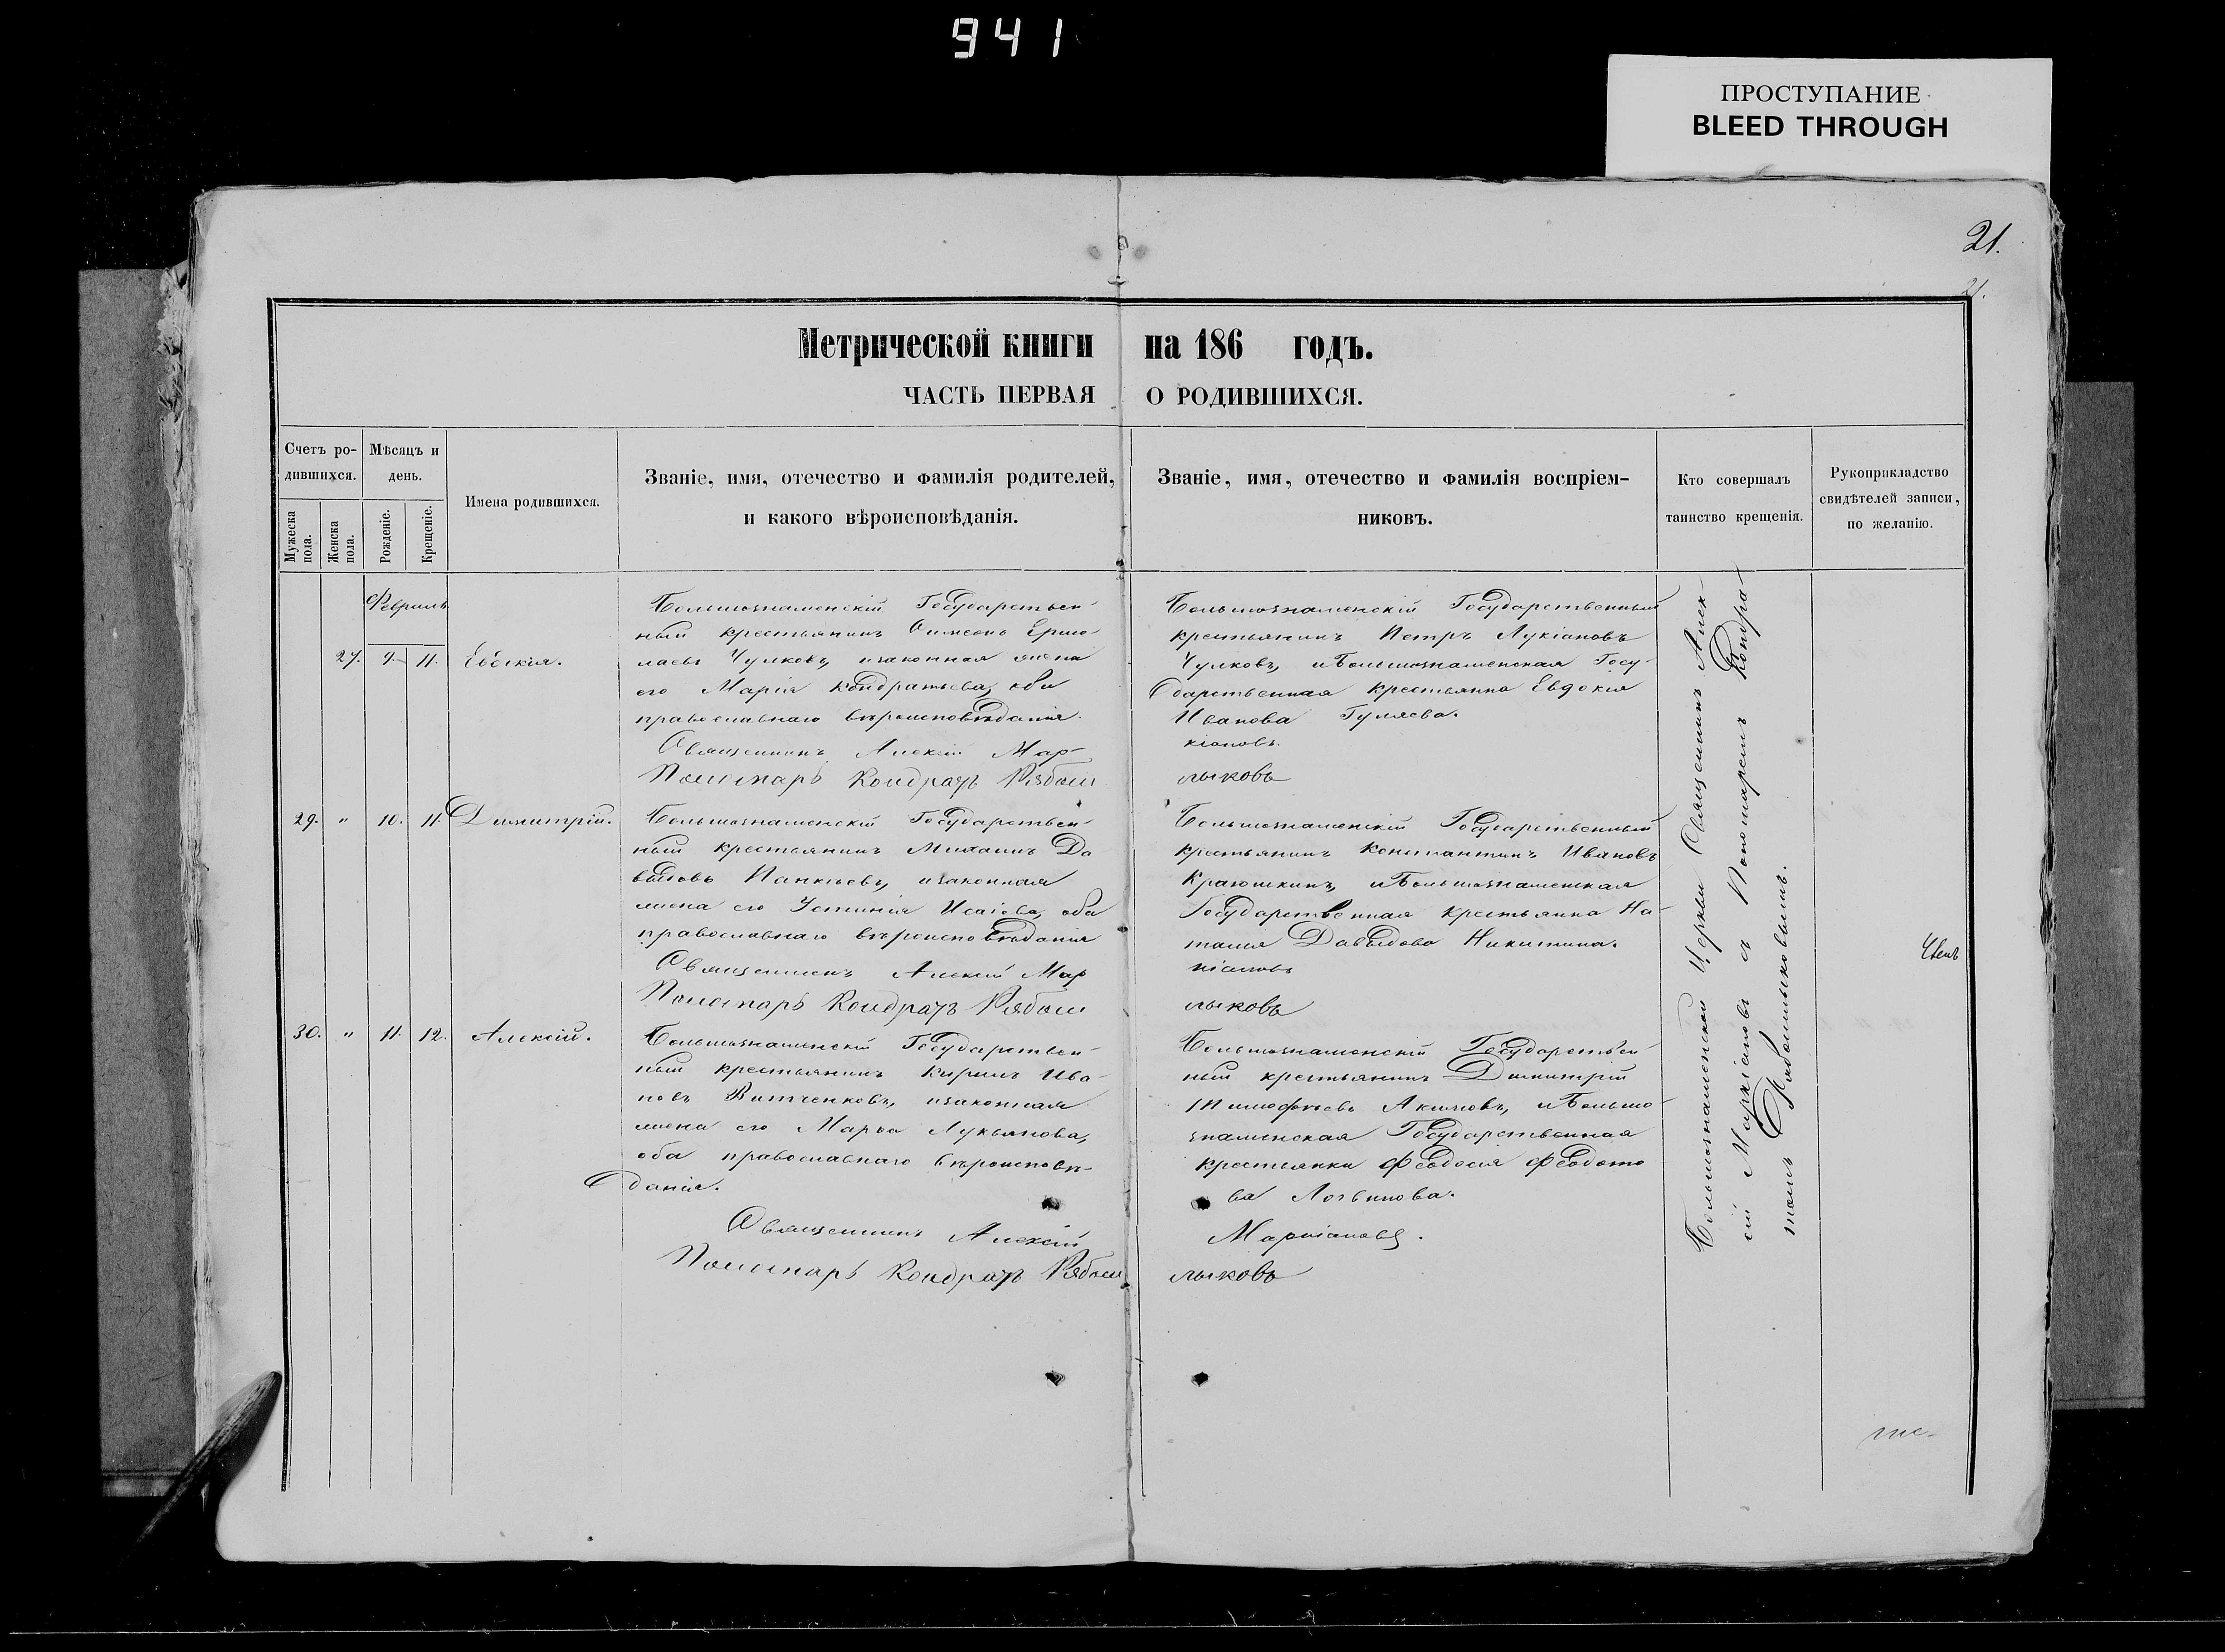 941
ПРОСТУПАНИЕ
BLEED THROUGH
21.
21.
Метрической книги на 186 годъ.
ЧАСТЬ ПЕРВАЯ О РОДИВШИХСЯ.
Счетъ ро-
дившихся.
Мужеска
пола.
Женска
пола.
Мѣсяцъ и
день.
Рожденіе.
Крещеніе.
Имена родившихся.
Званіе, имя, отечество и фамилія родителей,
и какого вѣроисповѣданія.
Званіе, имя, отечество и фамилія воспріем-
никовъ.
Кто совершалъ
таинство крещенія.
Рукоприкладство
свидѣтелей записи,
по желанію.
Февраль
27. 9. 11. Евдокія.
Большознаменскій Государствен-
ный крестьянинъ Симеонъ Ермо-
лаевъ Чулковъ, и законная жена
его Марія Кондратьева, оба
православнаго вѣроисповѣданія.
Священникъ Алексій Мар-
Пономарь Кондратъ Рябош
Большознаменскій Государственный
крестьянинъ Петръ Лукіановъ
Чулковъ, и Большознаменская Госу-
дарственная крестьянка Евдокія
Иванова Гуляева.
кіановъ.
лыковъ
29. " 10. 11. Димитрій.
Большознаменскій Государствен-
ный крестьянинъ Михаилъ Да
выдовъ Панкѣевъ, и законная
жена его Устинія Исаіева, оба
православнаго вѣроисповѣданія
Священникъ Алексій Мар
Пономарь Кондратъ Рябош
Большознаменскій Государственный
крестьянинъ Константинъ Ивановъ
Краюшкинъ, и Большознаменская
Государственная крестьянка На-
талія Давыдова Никитина.
кіановъ
лыковъ
30. " 11. 12. Алексій.
Большознаменскій Государствен-
ный крестьянинъ Кирилъ Ива-
новъ Витченковъ, и законная
жена его Марѳа Лукьянова,
оба православнаго вѣроисповѣ-
данія.
Священникъ Алексій
Пономарь Кондратъ Рябош
Большознаменскій Государствен
ный крестьянинъ Димитрій
Тимофѣевъ Акимовъ, и Большо-
знаменская Государственная
крестьянка Феодосія Феодото
ва Логвинова.
Маркіановъ.
лыковъ
Большознаменской Церкви Священникъ Алек-
сій Маркіановъ съ Пономаремъ Кондра-
томъ Рябошлыковымъ.